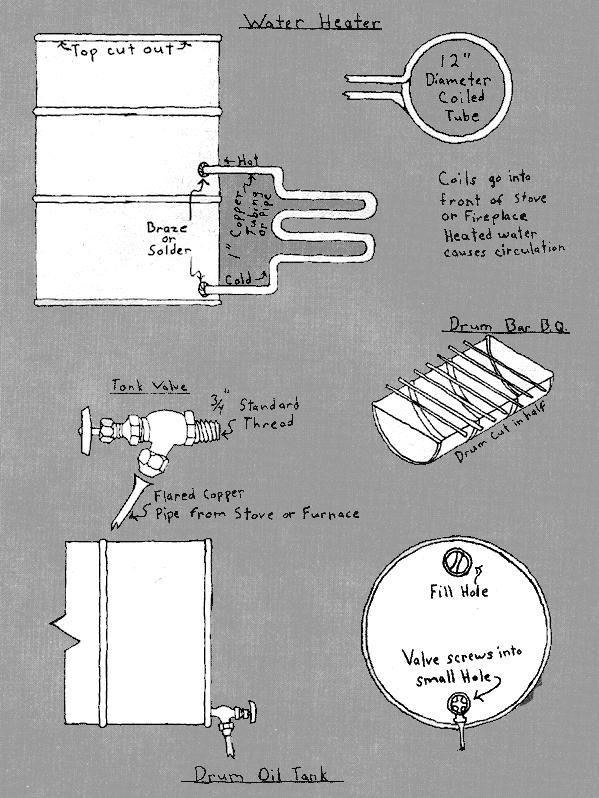 Water Heater
Top cut out
12"
Diameter
Coiled
Tube
Hot
1" Copper
Tubing
or Pipe
Braze
or
Solder
Cold
Coils go into
front of Stove
or Fireplace
Heated water
causes circulation
Drum Bar B.Q.
Drum Cut in half
Tank Valve
3/4" Standard
Thread
Flared Copper
Pipe from Stove or Furnace
Fill Hole
Valve screws into
small Hole
Drum Oil Tank